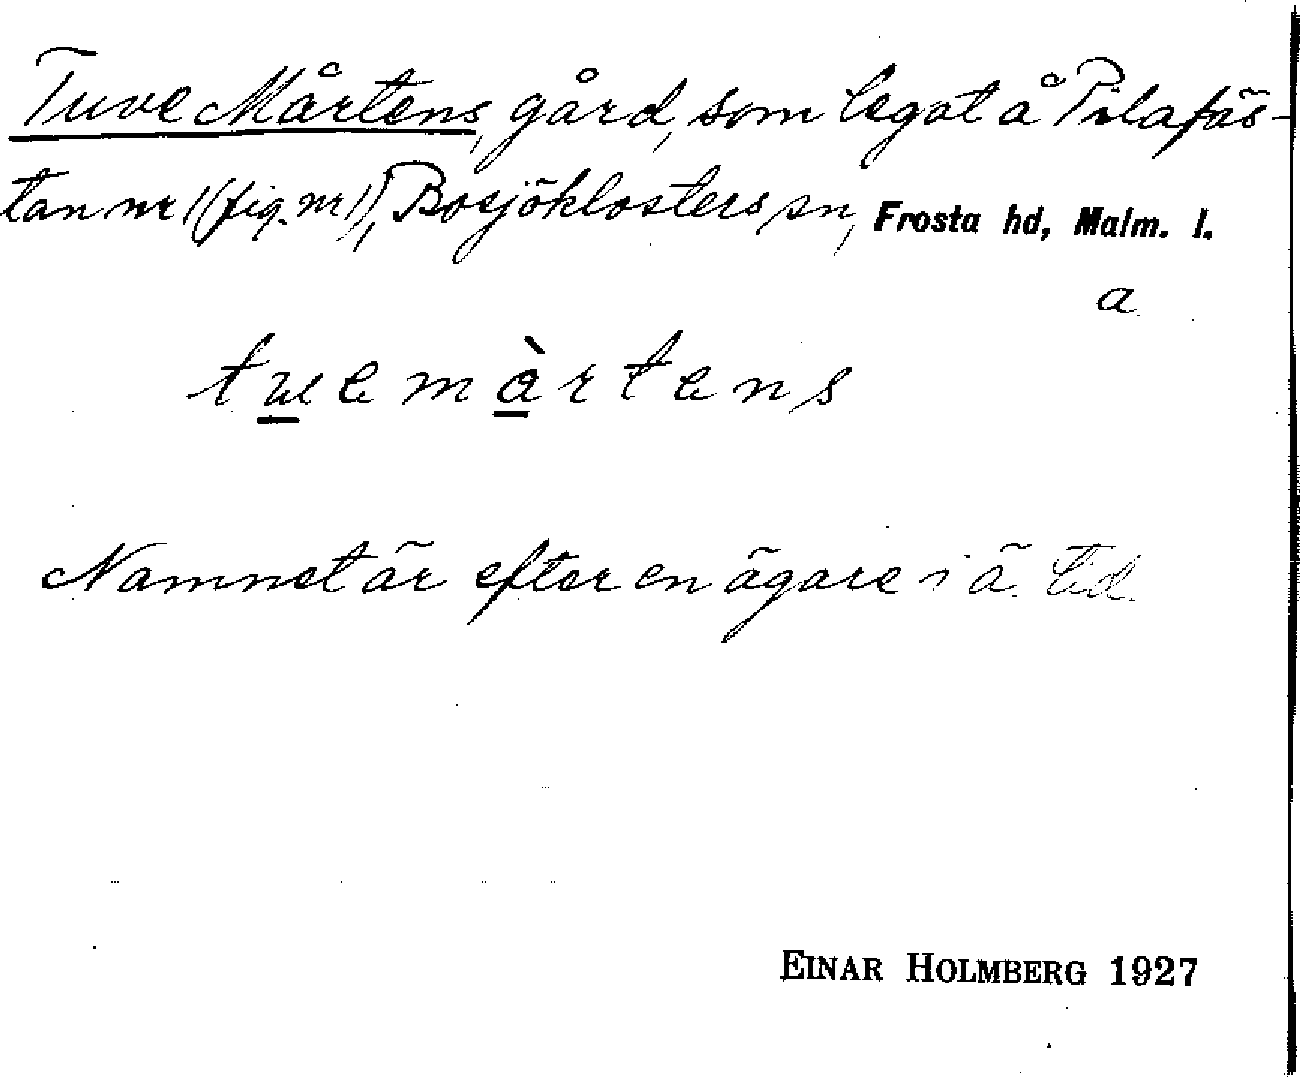 Tuve Mårtens, gård, som legat å Pilafäs-
tan nr 1 (fig. nr 1), Bosjöklosters sn, Frosta hd, Malm. l.
a
Namnet är efter en ägare i ä. tid.
EINAR HOLMBERG 1927